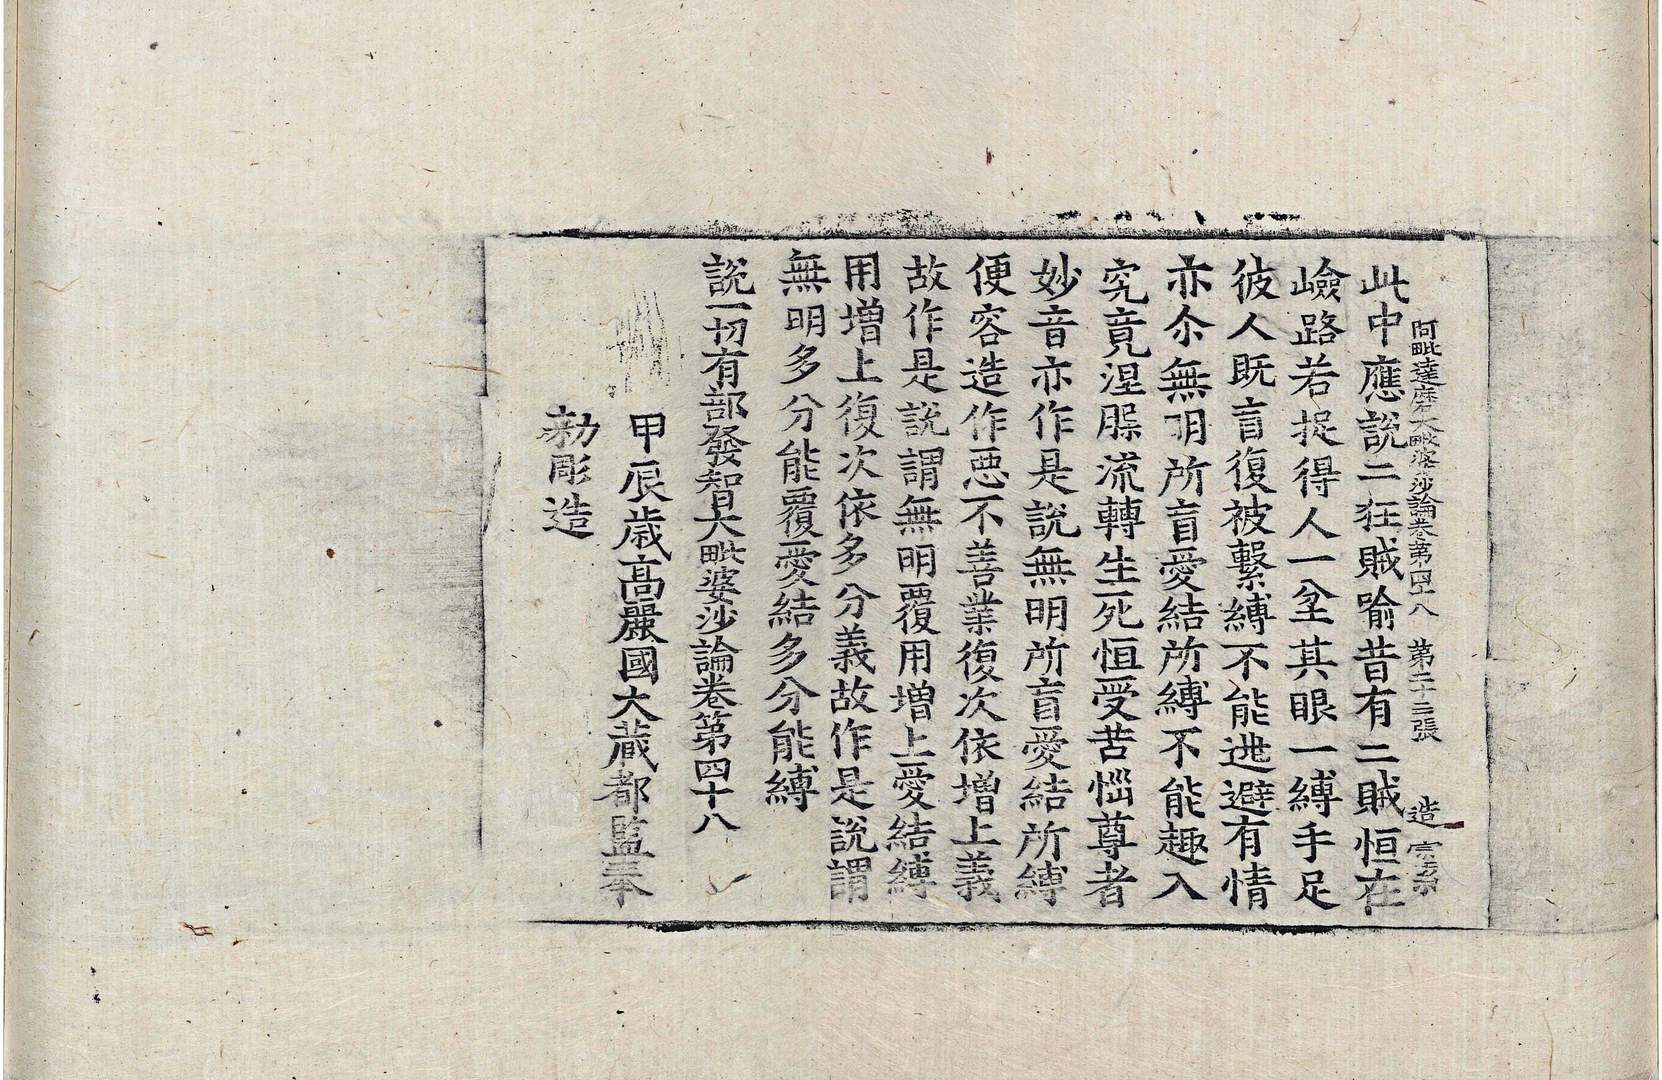 阿毗達磨大毗婆沙論卷第四十八 第二十三張 造
此中應說二狂賊喻昔有二賊恒在
嶮路若捉得人一坌其眼一縛手足
彼人既盲復被繫縛不能逃避有情
亦尒無明所盲愛結所縛不能趣入
究竟涅槃流轉生死恒受苦惱尊者
妙音亦作是說無明所盲愛結所縛
便容造作惡不善業復次依增上義
故作是說謂無明覆用增上愛結縛
用增上復次依多分義故作是說謂
無明多分能覆愛結多分能縛
說一切有部發智大毗婆沙論卷第四十八
甲辰歲高麗國大藏都監奉
勑彫造